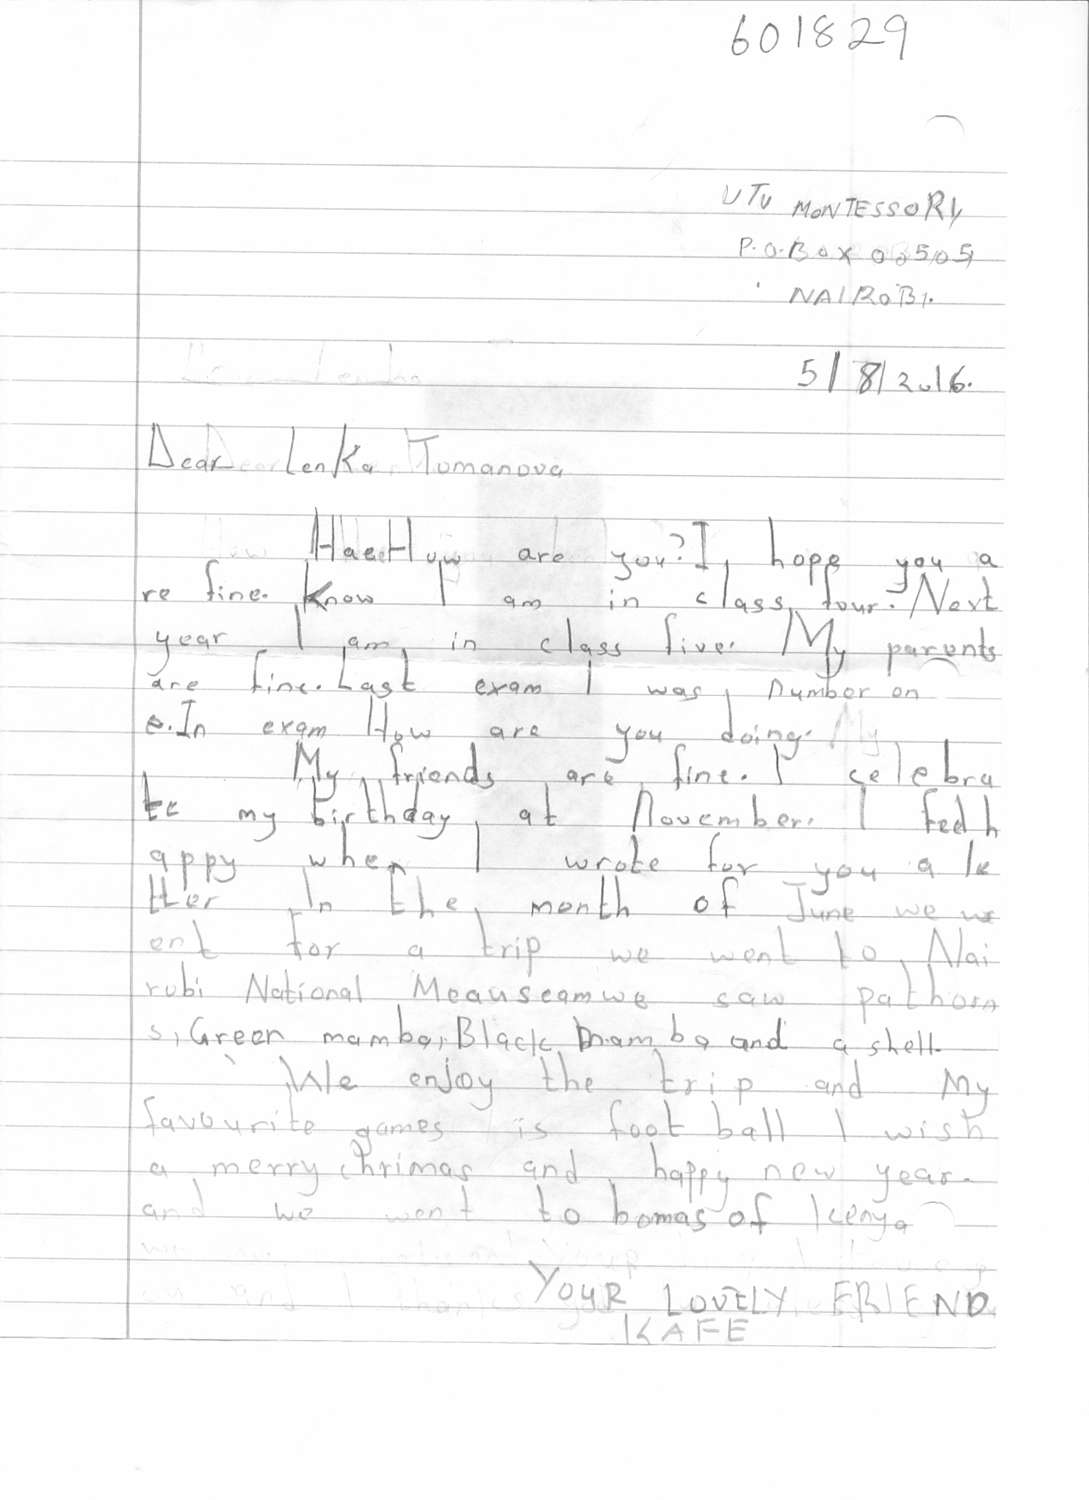 601829
UTU MONTESSORI,
P.O.BOX 00505,
NAIROBI.
5/8/2016.
Dear Lenka Tomanova
Hae How are you? I hope you a
re fine. Know I am in class four. Next
year I am in class five. My parents
are fine. Last exam I was number on
e. In exam How are you doing. My
My friends are fine. I celebra
te my birthday at November. I feel h
appy when I wrote for you a le
tter In the month of June we w
ent for a trip we went to Nai
robi National Meauseam we saw pathorn
s, Green mamba, Black mamba and a shell.
We enjoy the trip and My
favourite games is foot ball I wish
a merry chrimas and happy new year.
and we went to bomas of Kenya
YOUR LOVELY FRIEND
KAFE